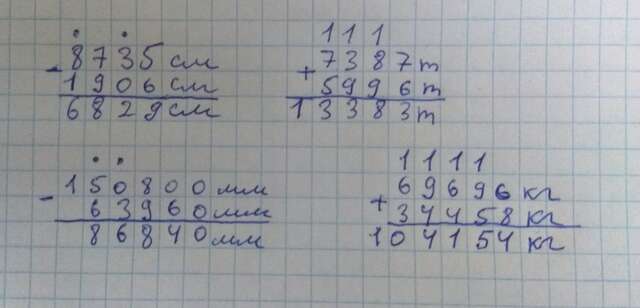 - 8735 см
1906 см
6829 см
1 1 1
+ 7387 т
5996 т
13383 т
- 150800 мм
63960 мм
86840 мм
1 1 1 1
+ 69696 кг
34458 кг
104154 кг